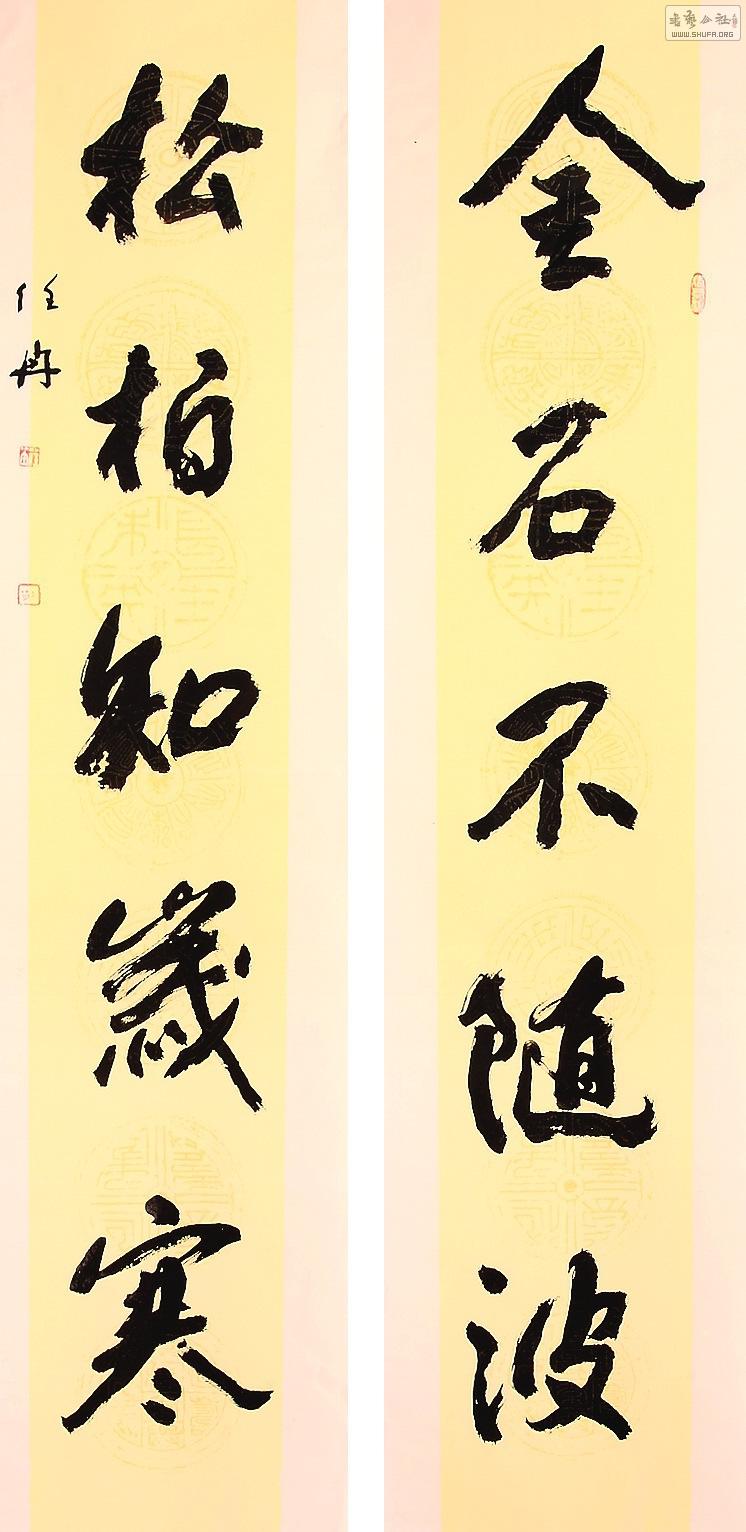 金石不随波
松柏知岁寒
任冉
书艺公社
WWW.SHUFA.ORG